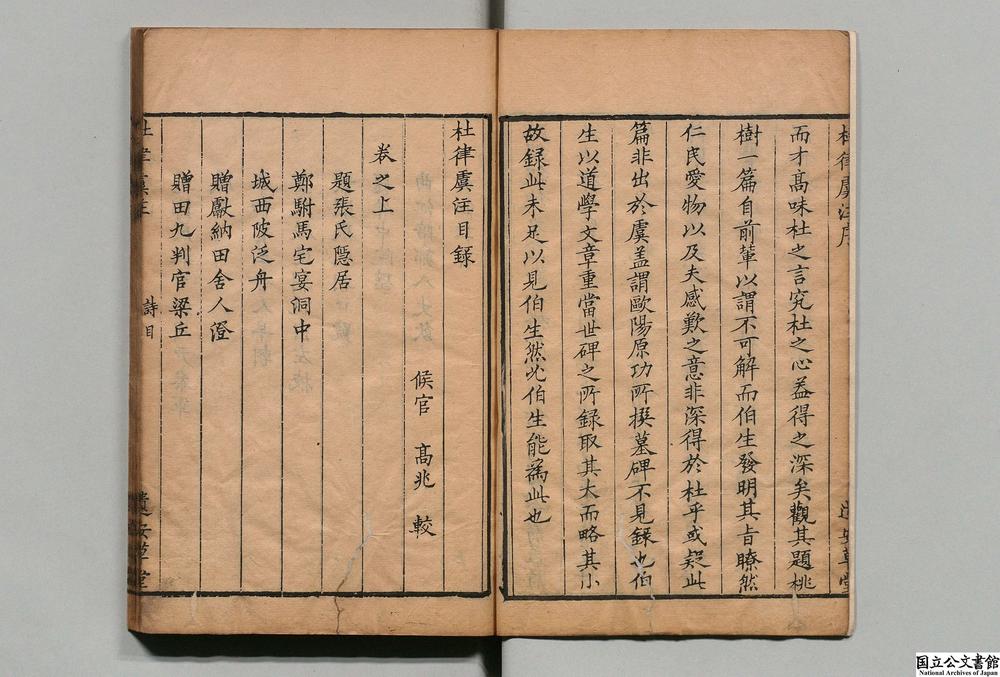 杜律虞注序
而才髙味杜之言究杜之心益得之深矣觀其題桃
樹一篇自前輩以謂不可解而伯生發明其旨瞭然
仁民愛物以及夫感歎之意非深得於杜乎或疑此
篇非出於虞盖謂歐陽原功所撰墓碑不見録也伯
生以道學文章重當世碑之所録取其大而略其小
故録此未足以見伯生然必伯生能為此也
杜律虞注目録
候官 髙兆 較
卷之上
題張氏隠居
鄭駙馬宅宴洞中
城西陂泛舟
贈獻納田舍人澄
贈田九判官梁丘
杜律虞注
詩目
遺安草堂
国立公文書館
National Archives of Japan